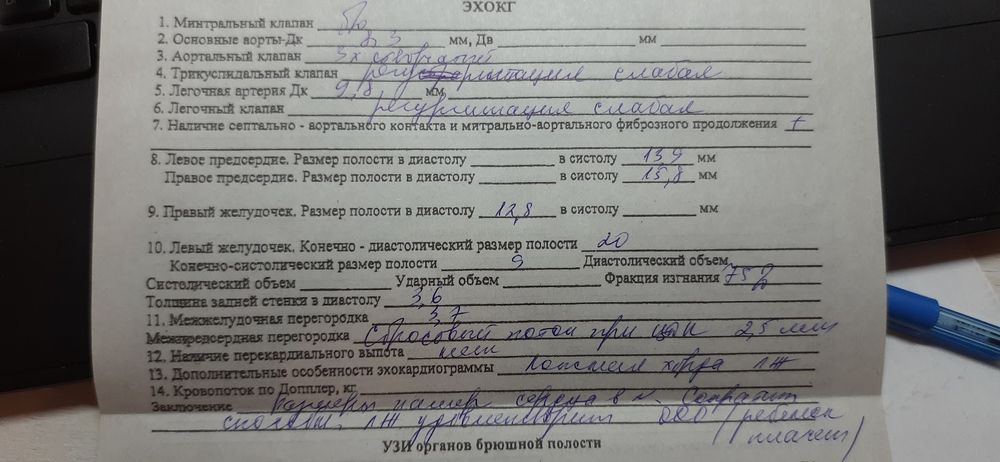 ЭХОКГ
1. Минтральный клапан б/о
2. Основные аорты-Дк 8,3 мм, Дв мм
3. Аортальный клапан 3х створчатый
4. Трикуспидальный клапан регургитация слабая
5. Легочная артерия Дк 9,8 мм,
6. Легочный клапан регургитация слабая
7. Наличие септально - аортального контакта и митрально-аортального фиброзного продолжения +
8. Левое предсердие. Размер полости в диастолу в систолу 13,9 мм
Правое предсердие. Размер полости в диастолу в систолу 15,8 мм
9. Правый желудочек. Размер полости в диастолу 12,8 в систолу мм
10. Левый желудочек. Конечно - диастолический размер полости 20
Конечно-систолический размер полости 9 Диастолический объем
Систолический объем Ударный объем Фракция изгнания 75
Толщина задней стенки в диастолу 3,6
11. Межжелудочная перегородка 3,7
Межпредсердная перегородка Сбросовый поток при 2,5 мм
12. Наличие перекардиального выпота нет
13. Дополнительные особенности эхокардиограммы ложная хорда ЛЖ
14. Кровопоток по Допплер, кг
Заключение Размеры камер сердца в N. Сократит
способн. ЛЖ удовлетворит ООО (ребенок
плачет)
УЗИ органов брюшной полости